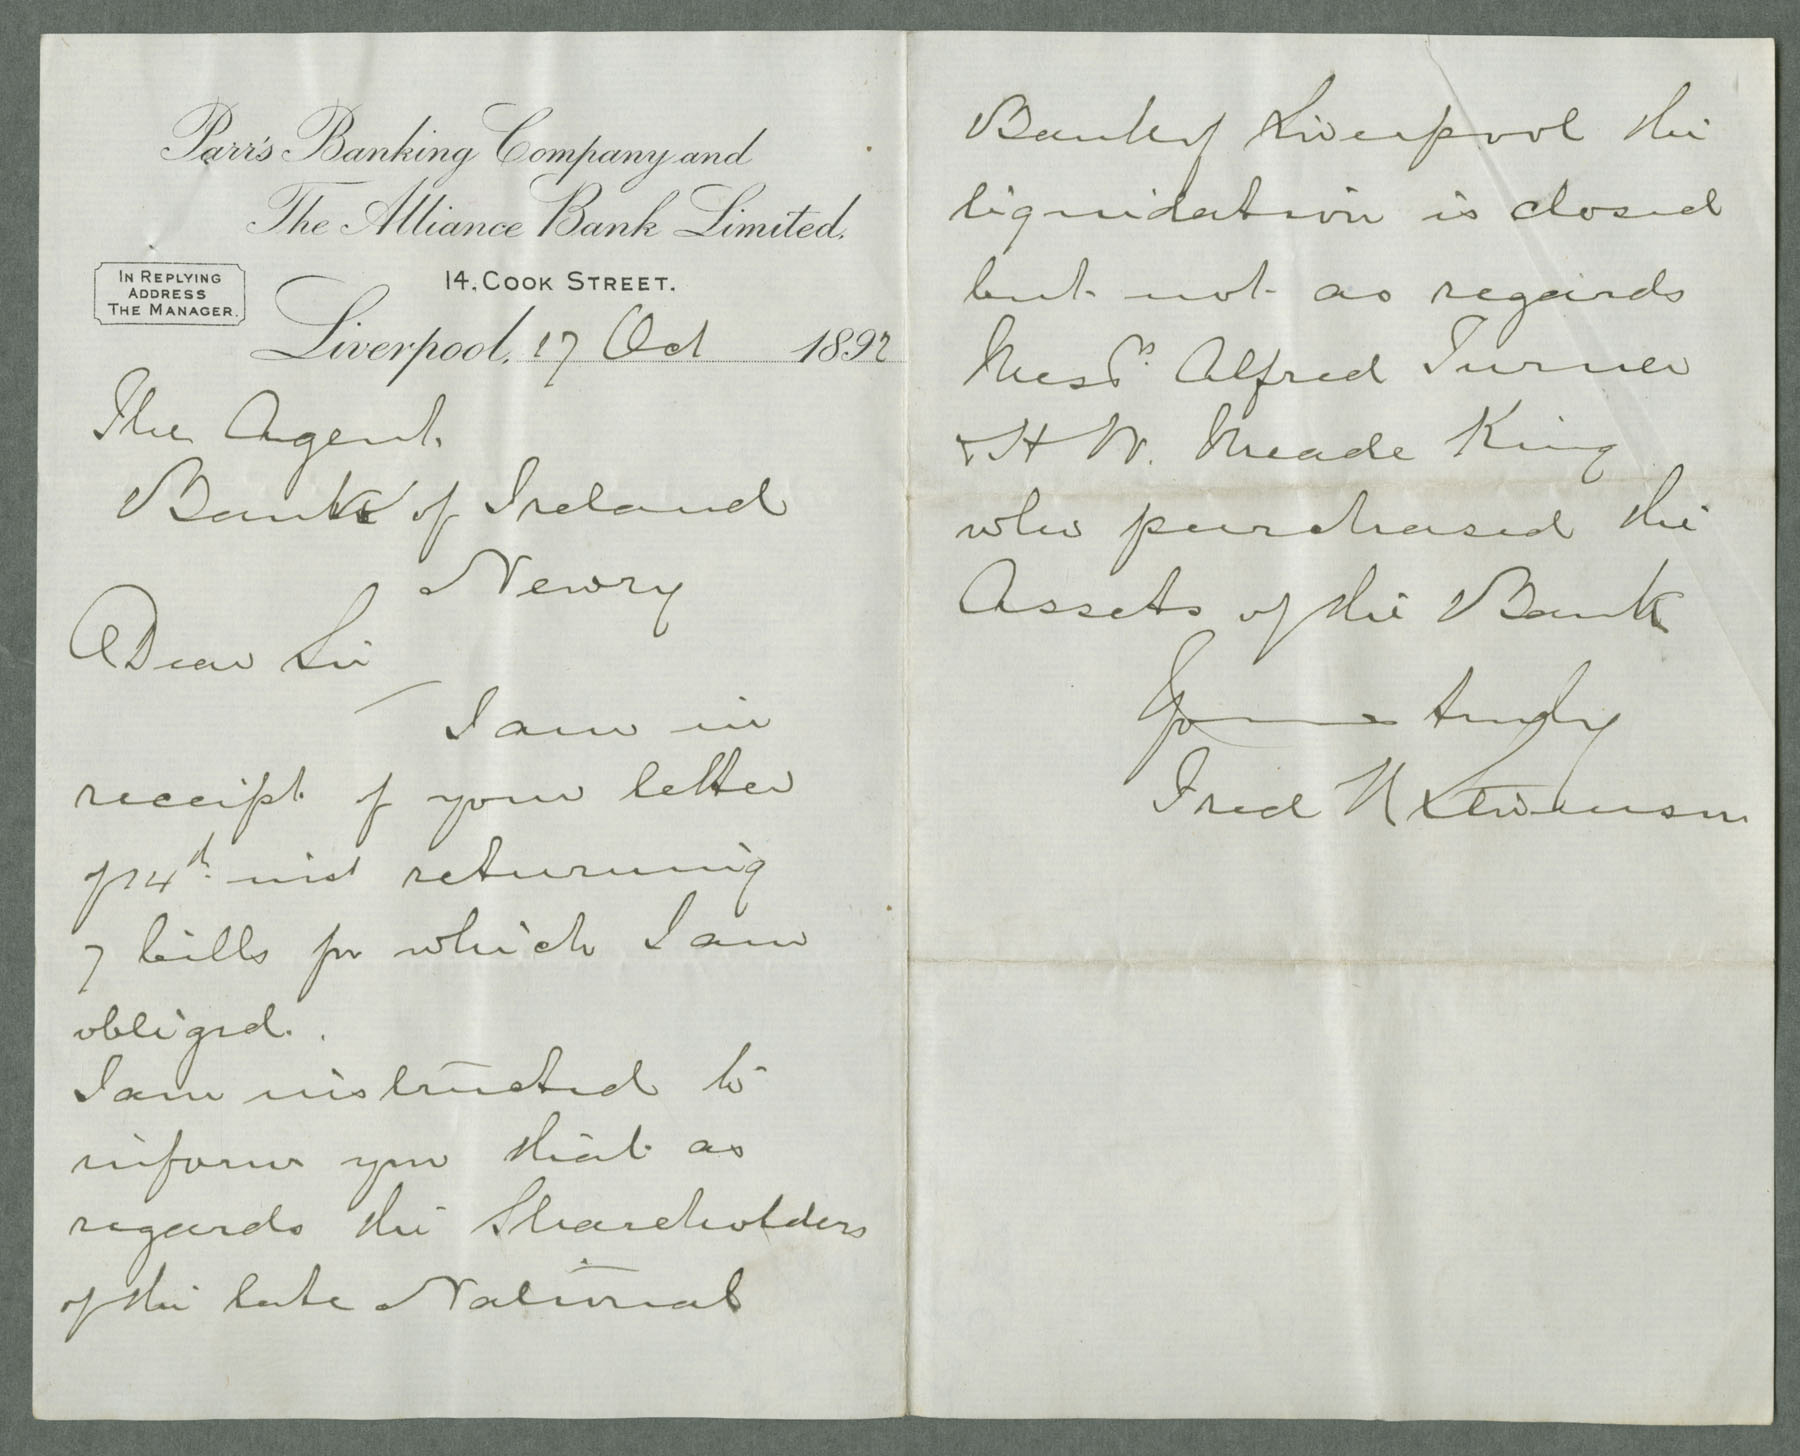 Parr's Banking Company and
The Alliance Bank Limited.
IN REPLYING
ADDRESS
THE MANAGER.
14, COOK STREET.
Liverpool, 17 Oct 1892
The Agent
Bank of Ireland
Newry
Dear Sir
I am in
receipt of your letter
of 14th inst returning
7 bills for which I am
obliged.
I am instructed to
inform you that as
regards the Shareholders
of the late National
Bank of Liverpool the
liquidation is closed
but not as regards
Messrs Alfred Turner
& H W. Meade King
who purchased the
Assets of the Bank
Yours truly
Fred